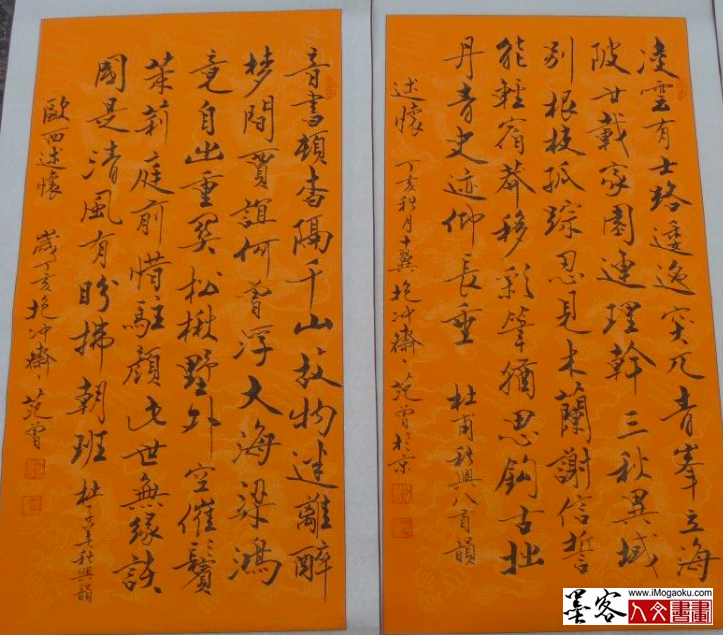 凌雲有士路逶迤突兀青峯立海
陂廿載家園連理幹三秋異域
別根枝孤踪忍見木蘭謝信誓
能輕宿莽移彩筆猶思鉤古拙
丹青史迹仰長垂 杜甫秋興八首韻
述懷 丁亥秋月十翼抱沖齋范曾於京
音書頓杳隔千山故物迷離醉
梦間賈誼何曾浮大海梁鴻
竟自出重關松楸野外空催鬢
茉莉庭前惜駐顏此世無緣詼
國是清風有盼拂朝班 杜子美秋興韻
歐西述懷 歲丁亥抱沖齋范曾
墨客
www.iMogaoku.com
人文書畫